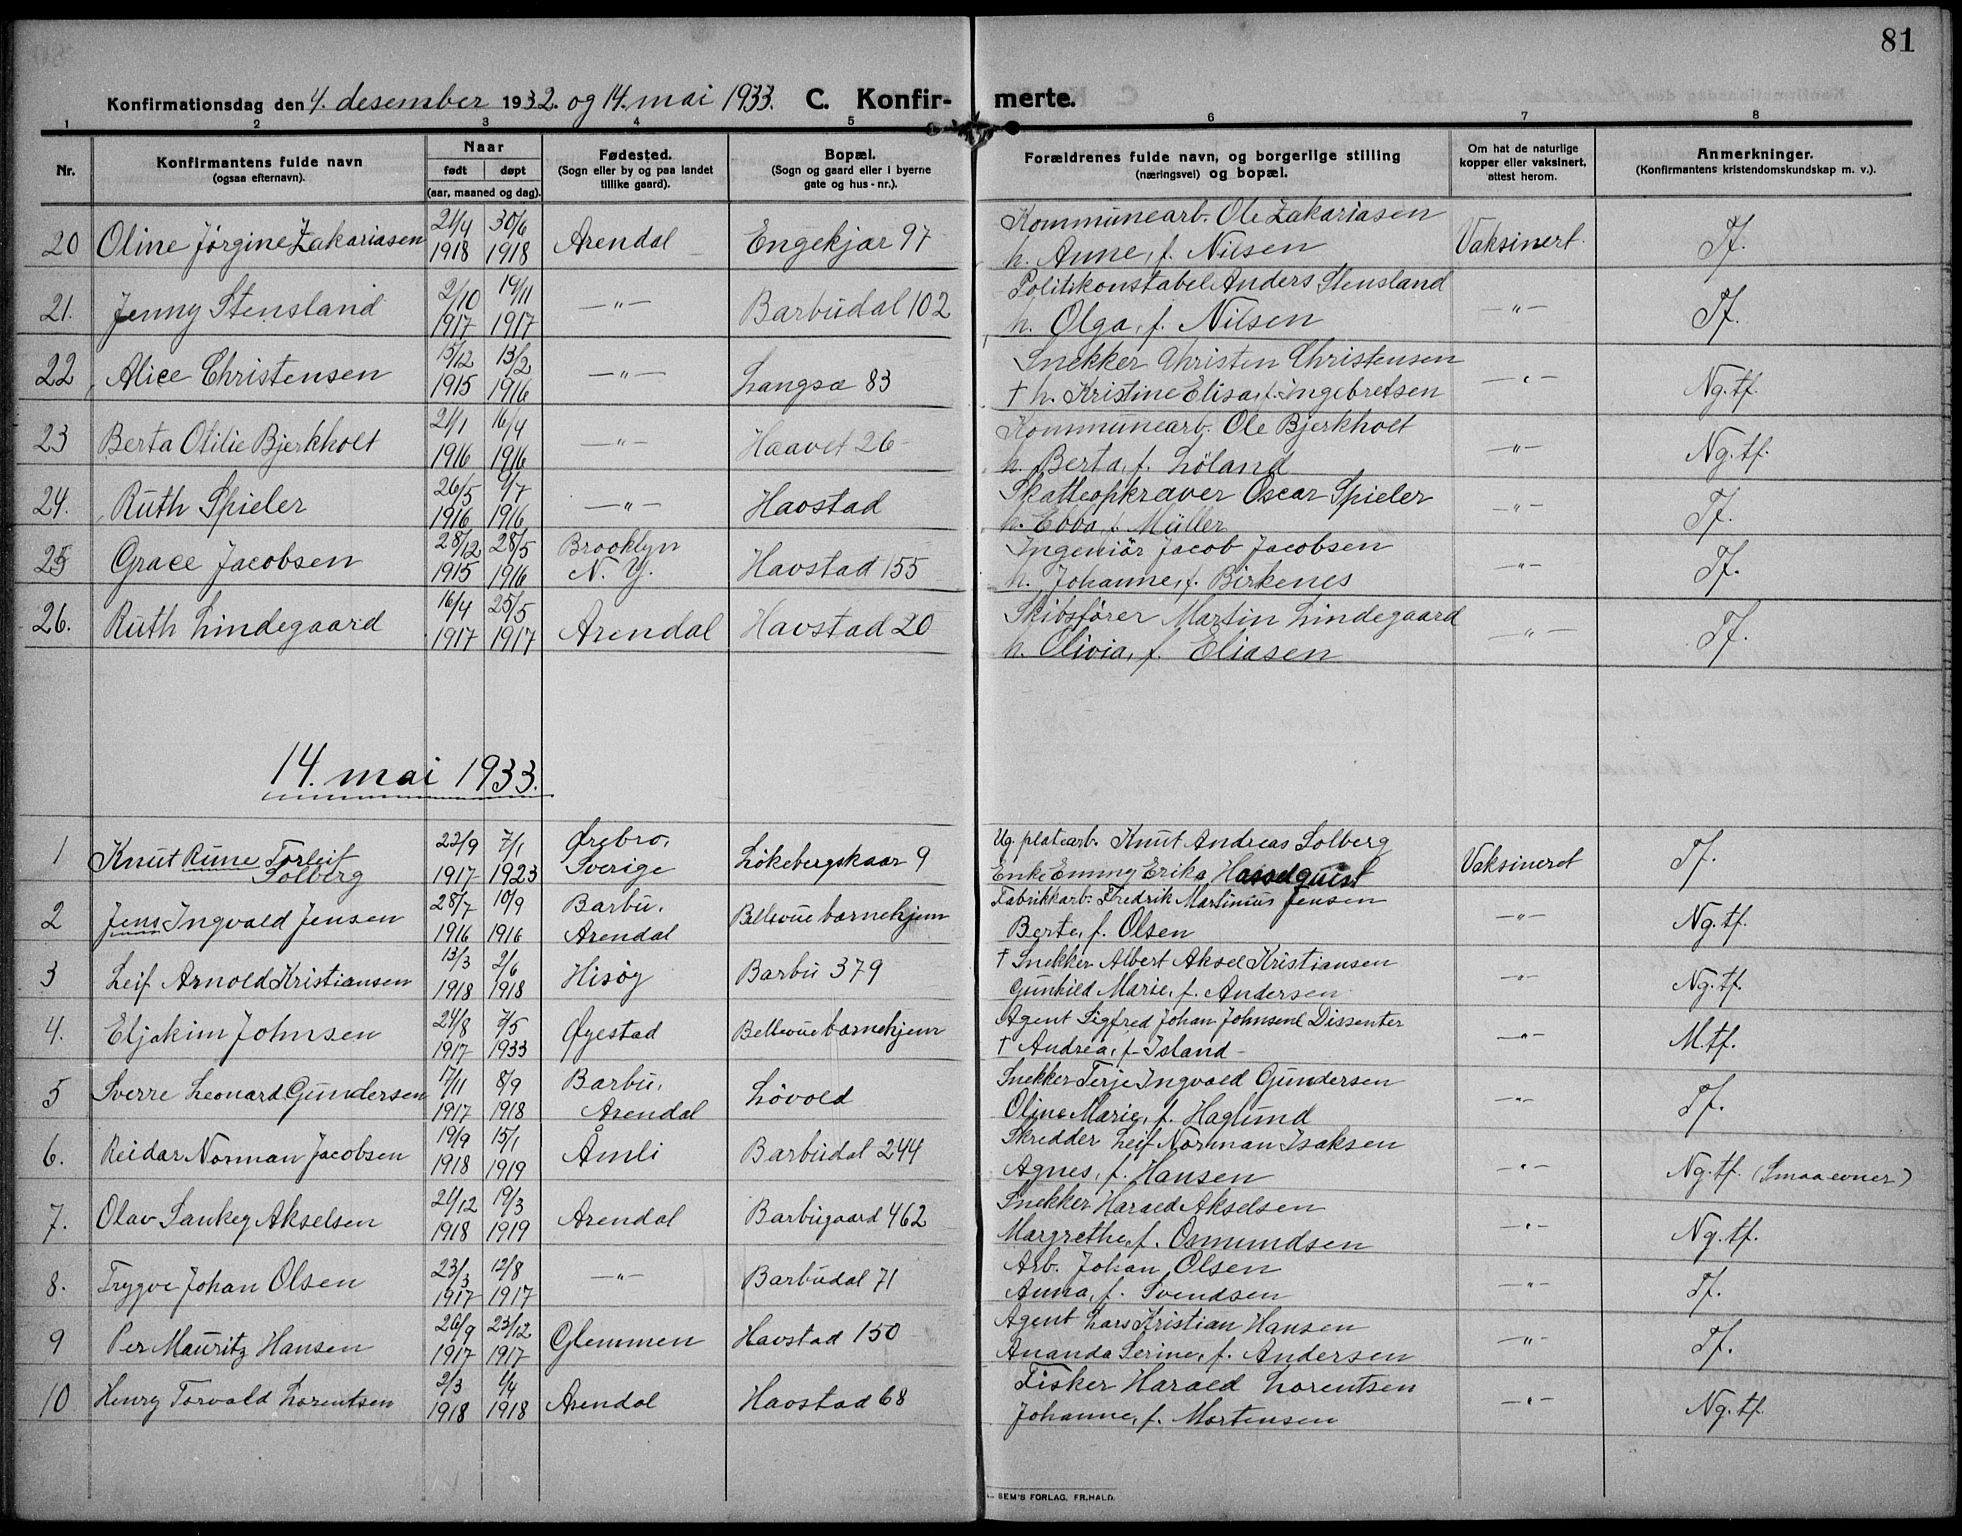 81
Konfirmationsdag den 4. desember 1932. og 14. mai 1933. C. Konfirmerte.
1 2 3 4 5 6 7 8
Nr.
Konfirmantens fulde navn
(ogsaa efternavn).
Naar
født døpt
(aar, maaned og dag).
Fødested.
(Sogn eller by og paa landet
tillike gaard).
Bopæl.
(Sogn og gaard eller i byerne
gate og hus-nr.).
Forældrenes fulde navn, og borgerlige stilling
(næringsvei) og bopæl.
Om hat de naturlige
kopper eller vaksinert,
attest herom.
Anmerkninger.
(Konfirmantens kristendomskundskap m. v.).
20 Oline Jörgine Zakariasen 21/4 1918 30/6 1918 Arendal Engekjær 97 Kommunearb. Ole Zakariasen
h. Anne, f. Nilsen Vaksinert. Tf.
21. Jenny Stensland 2/10 1917 19/11 1917 —"— Barbudal 102 Politikonstabel Anders Stensland
h. Olga, f. Nilsen —"— Tf.
22 Alice Christensen 15/12 1915 13/2 1916 —"— Langsæ 83 Snekker Christen Christensen
† h. Kristine Elisa, f. Ingebretsen —"— Ng. tf.
23 Berta Otilie Bjerkholt 21/1 1916 16/4 1916 —"— Haavet 26 Kommunearb. Ole Bjerkholt
h. Berta, f. Löland —"— Ng. tf.
24. Ruth Spieler 26/5 1916 9/7 1916 —"— Havstad Skatteopkræver Oscar Spieler
h. Ebba, f. Müller —"— Tf.
25 Grace Jacobsen 28/12 1915 28/5 1916 Brooklyn N. Y. Havstad 155 Ingeniör Jacob Jacobsen
h. Johanne, f. Birkenes —"— Tf.
26. Ruth Lindegaard 16/4 1917 25/5 1917 Arendal Havstad 20 Skibsfører Martin Lindegaard
h. Olivia, f. Eliasen —"— Tf.
14. mai 1933.
1 Knut Rune Torleif Solberg 23/9 1917 7/1 1923 Ørebro, Sverige Lökebergskaar 9 Ug. platearb. Knut Andreas Solberg
Enke Emmy Erika Hasselquist Vaksineret Tf.
2 Jens Ingvald Jensen 28/7 1916 10/9 1916 Barbu, Arendal Bellevue barnehjem Fabrikkarb. Fredrik Martinius Jensen
Berte, f. Olsen —"— Ng. tf.
3 Leif Arnold Kristiansen 13/3 1918 2/6 1918 Hisøy Barbu 379 † Snekker Albert Aksel Kristiansen
Gunhild Marie, f. Andersen —"— Ng. tf.
4. Eljakim Johnsen 24/8 1917 7/5 1933 Øyestad Bellevue barnehjem Agent Sigfred Johan Johnsen Dissenter
† Andrea, f. Island —"— M. tf.
5 Sverre Leonard Gundersen 17/11 1917 8/9 1918 Barbu, Arendal Lövold Snekker Terje Ingvald Gundersen
Oline Marie, f. Haglund —"— Tf.
6. Reidar Norman Jacobsen 19/9 1918 15/1 1919 Åmli Barbudal 244 Skredder Leif Norman Isaksen
Agnes, f. Hansen —"— Ng. tf. (Smaa evner)
7. Olav Sankey Akselsen 24/12 1918 19/3 1919 Arendal Barbugaard 462 Snekker Harald Akselsen
Margrethe, f. Osmundsen —"— Ng. tf.
8. Trygve Johan Olsen 23/3 1917 12/8 1917 —"— Barbudal 71 Arb. Johan Olsen
Anna, f. Svendsen —"— Tf.
9 Per Mauritz Hansen 26/9 1917 23/12 1917 Glemmen Havstad 150 Agent Lars Kristian Hansen
Ananda Serine, f. Andersen —"— Tf.
10 Henry Torvald Lorentsen 2/3 1918 1/4 1918 Arendal Havstad 68 Fisker Harald Lorentsen
Johanne, f. Mortensen —"— Ng. tf.
SEM'S FORLAG, FR.HALD.